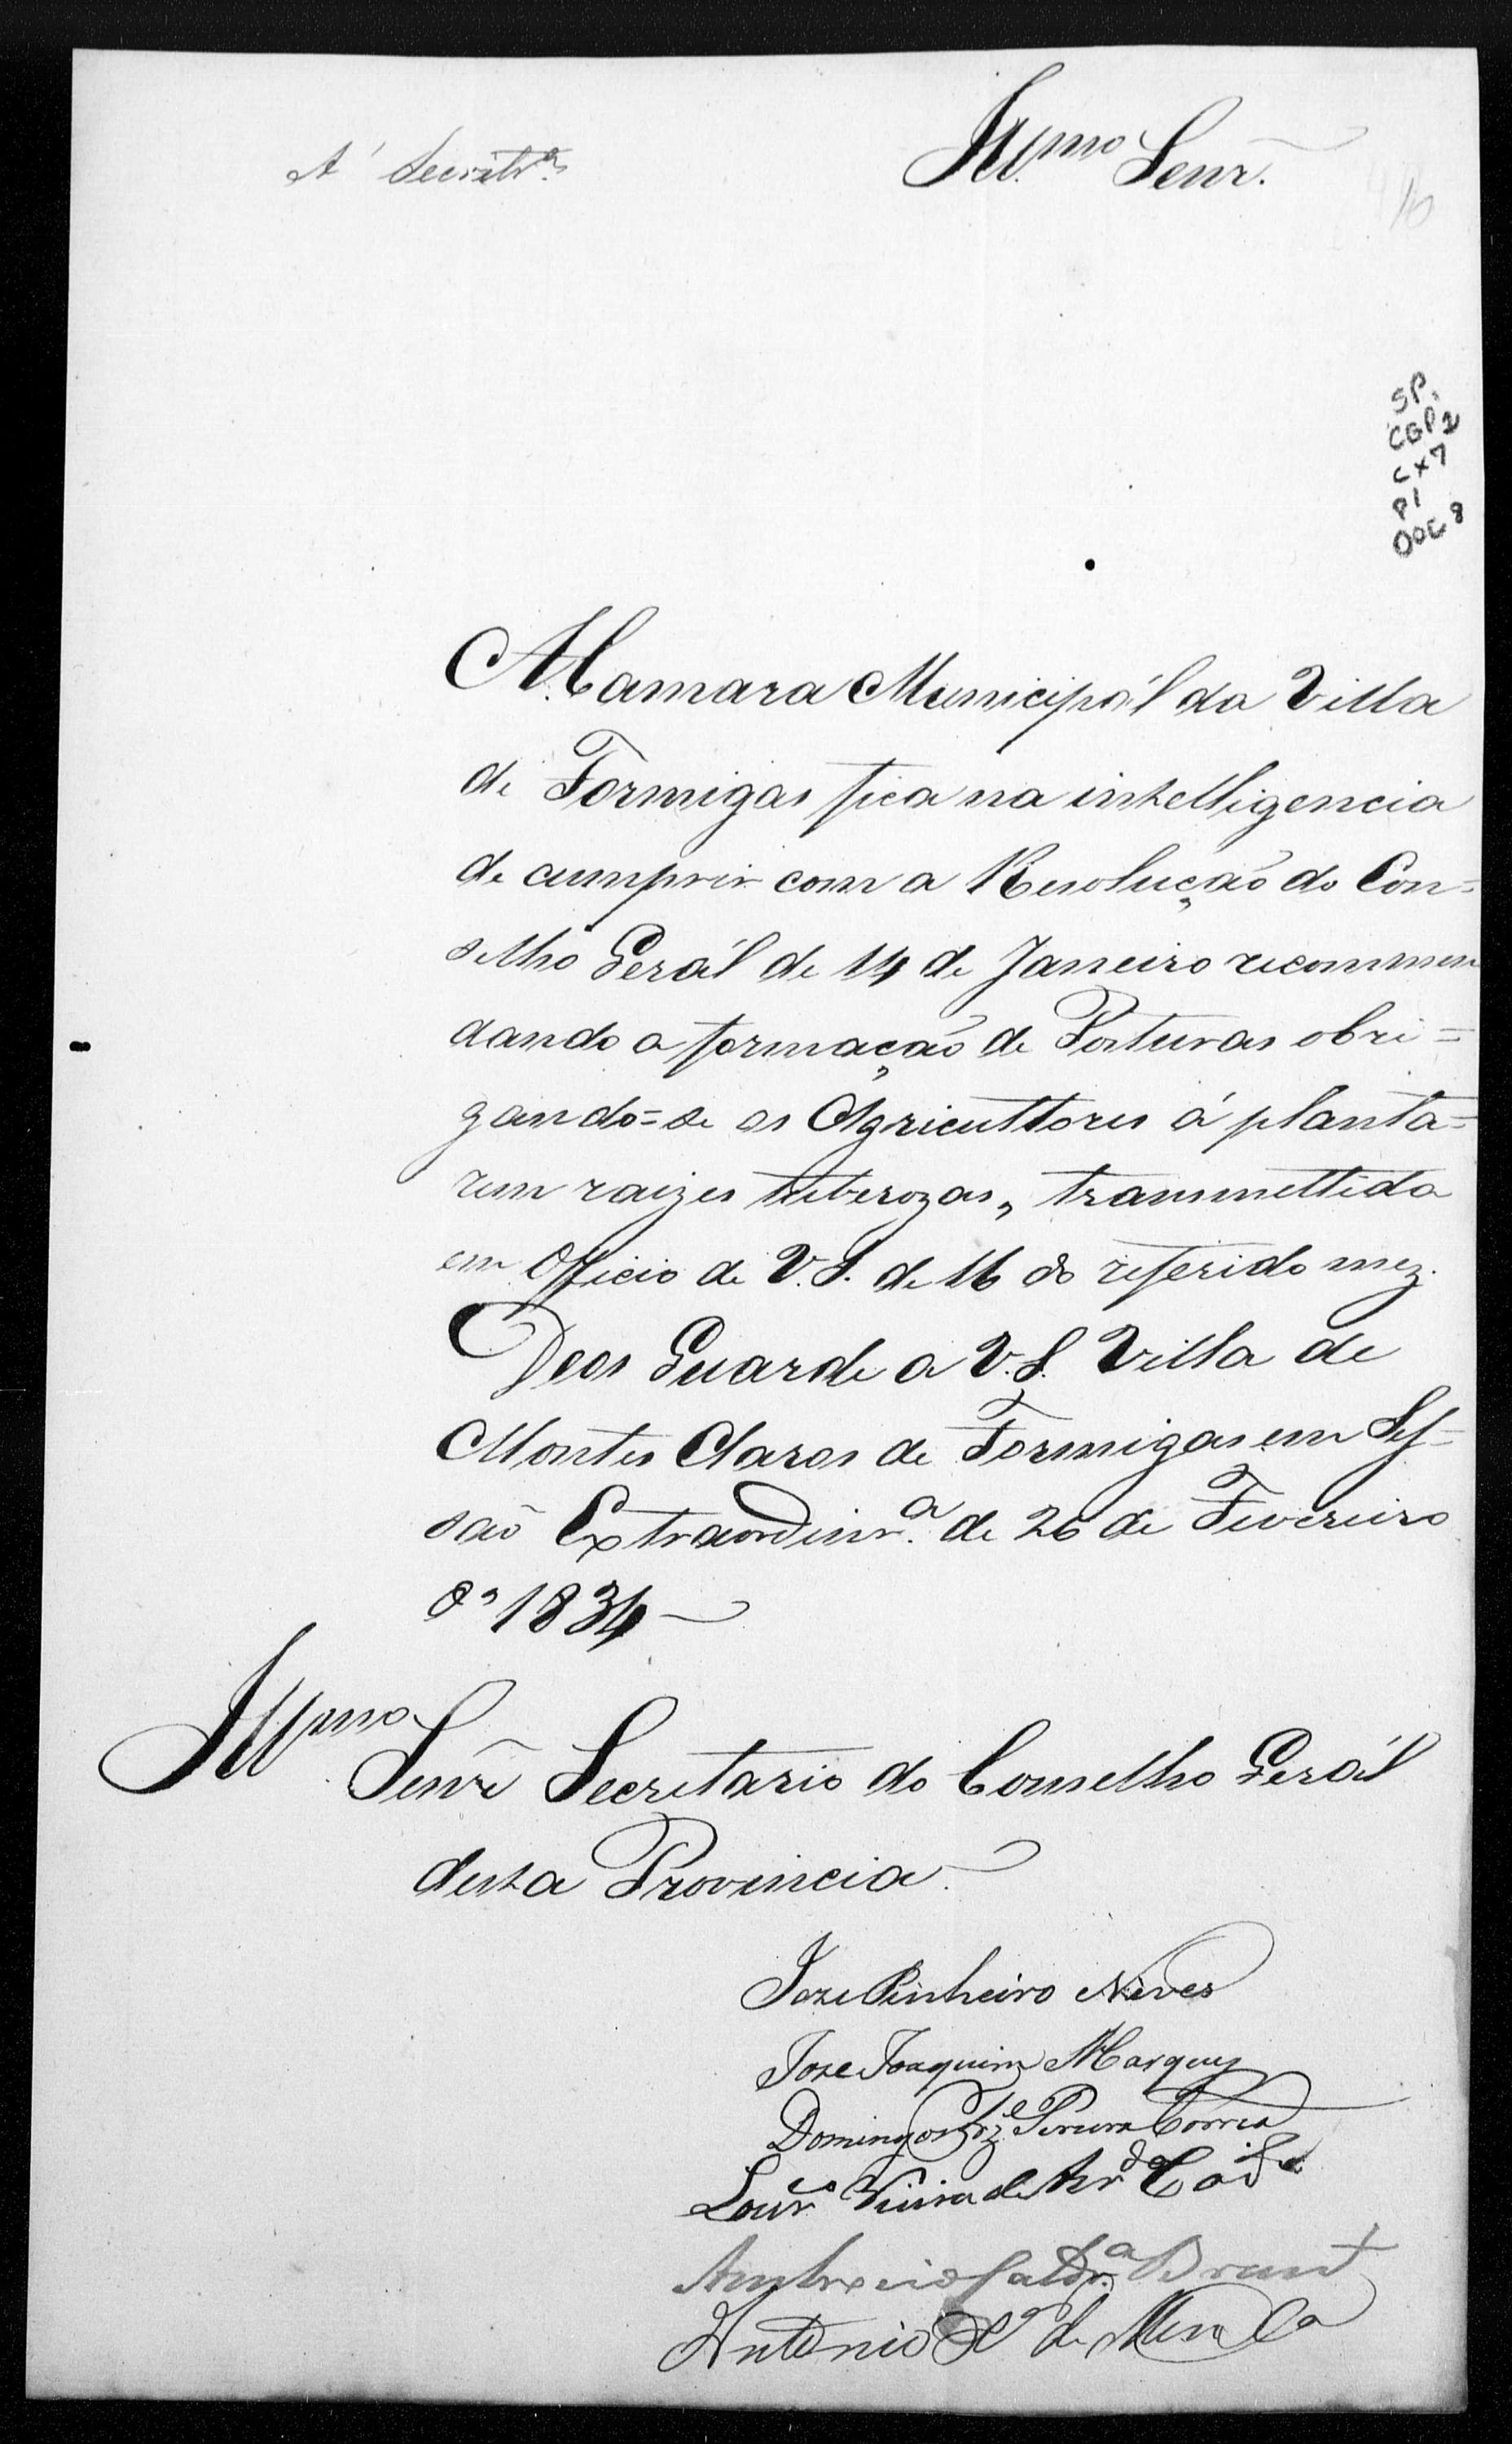 A' Secretr.ª
Ill.mo Senr.
SP.
CGP1
CX7
P1
DOC 8
A Camara Municipál da Villa
de Formigas fica na intelligencia
de cumprir com a Resolução do Con=
selho Gerál de 14 de Janeiro recommen
dando a formação de Posturas obri=
gando=se os Agricultores á planta=
rem raizes tuberozas, transmettida
em Officio de V. S. de 16 do referido mez.
Deos Guarde a V. S. Villa de
Montes Claros de Formigas em Ses=
são Extraordinr.ª de 26 de Fevereiro
de 1834
Ill.mo Senr. Secretario do Conselho Gerál
desta Provincia
Joze Pinheiro Neves
Joze Joaquim Marques
Domingos Joze Pereira Correa
Lour.ço Vieira de
Ambrosio Cald.ª Brant
Antonio X.er de Men.ça